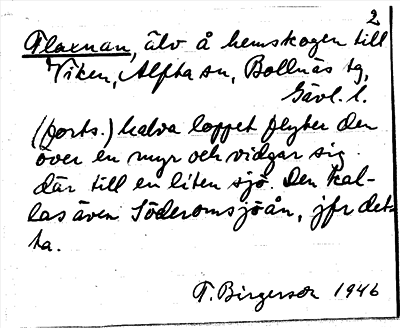 2
Flaxnan, älv å hemskogen till
Viken, Alfta sn, Bollnäs tg,
Gävl. l.
(forts.) halva loppet flyter den
över en myr och vidgar sig
där till en liten sjö. Den kal-
las även Söderomsjöån, jfr det-
ta.
T. Birgerson 1946